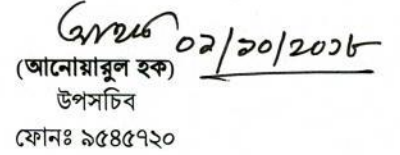 ০২/১০/২০১৮
(আনোয়ারুল হক)
উপসচিব
ফোনঃ ৯৫৪৫৭২০